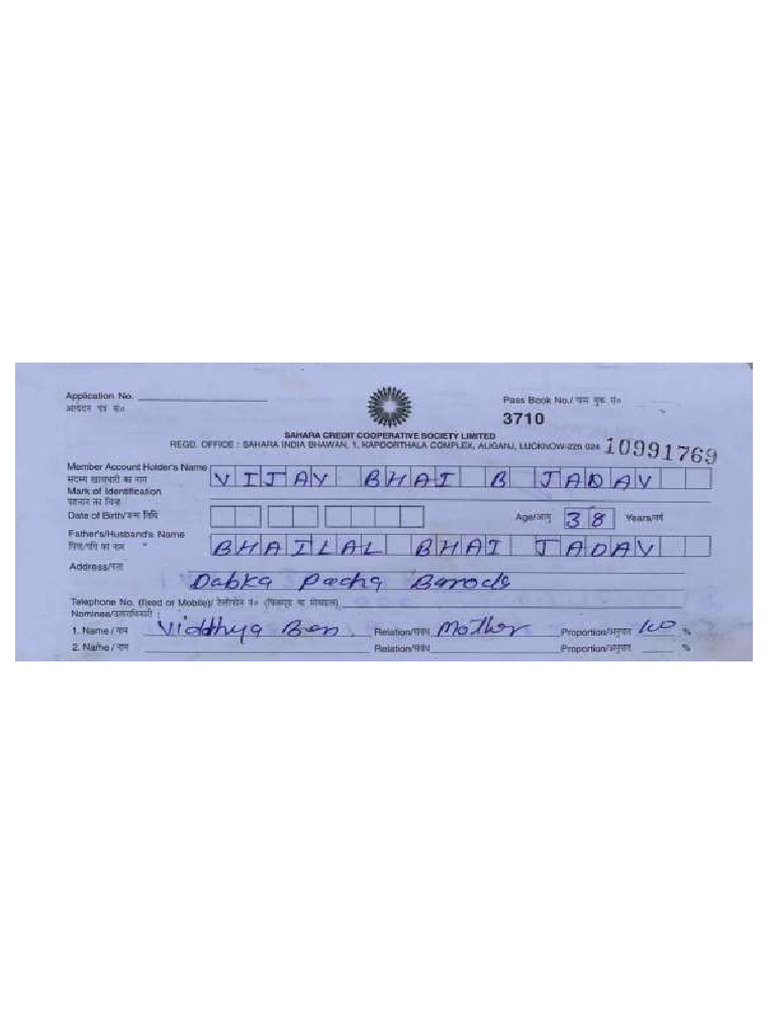 Application No.
आवेदन पत्र सं०
Pass Book No./ पास बुक सं०
3710
SAHARA CREDIT COOPERATIVE SOCIETY LIMITED
REGD. OFFICE : SAHARA INDIA BHAWAN, 1, KAPOORTHALA COMPLEX, ALIGANJ, LUCKNOW-226 024
10991769
Member Account Holder's Name VIJAY BHAI B JADAV
सदस्य खाताधारी का नाम
Mark of Identification
पहचान का चिन्ह
Date of Birth/जन्म तिथि Age/आयु 38 Years/वर्ष
Father's/Husband's Name BHAILAL BHAI JADAV
पिता/पति का नाम
Address/पता Dabka Baroda
Telephone No. (fixed or Mobile)/ टेलीफोन नं० (फिक्स्ड या मोबाइल)
Nominee/उत्तराधिकारी :
1. Name / नाम Viddhya Ben Relation/संबंध Mother Proportion/अनुपात 100 %
2. Name / नाम Relation/संबंध Proportion/अनुपात %